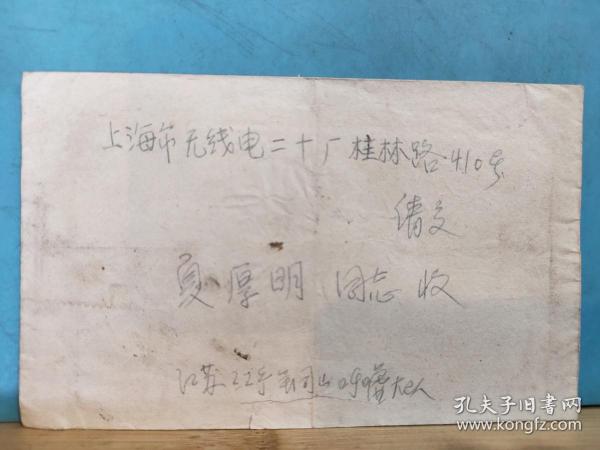 上海市无线电二十厂桂林路410号
请交
夏厚明 同志收
江苏
孔夫子旧书网
www.kongfz.com